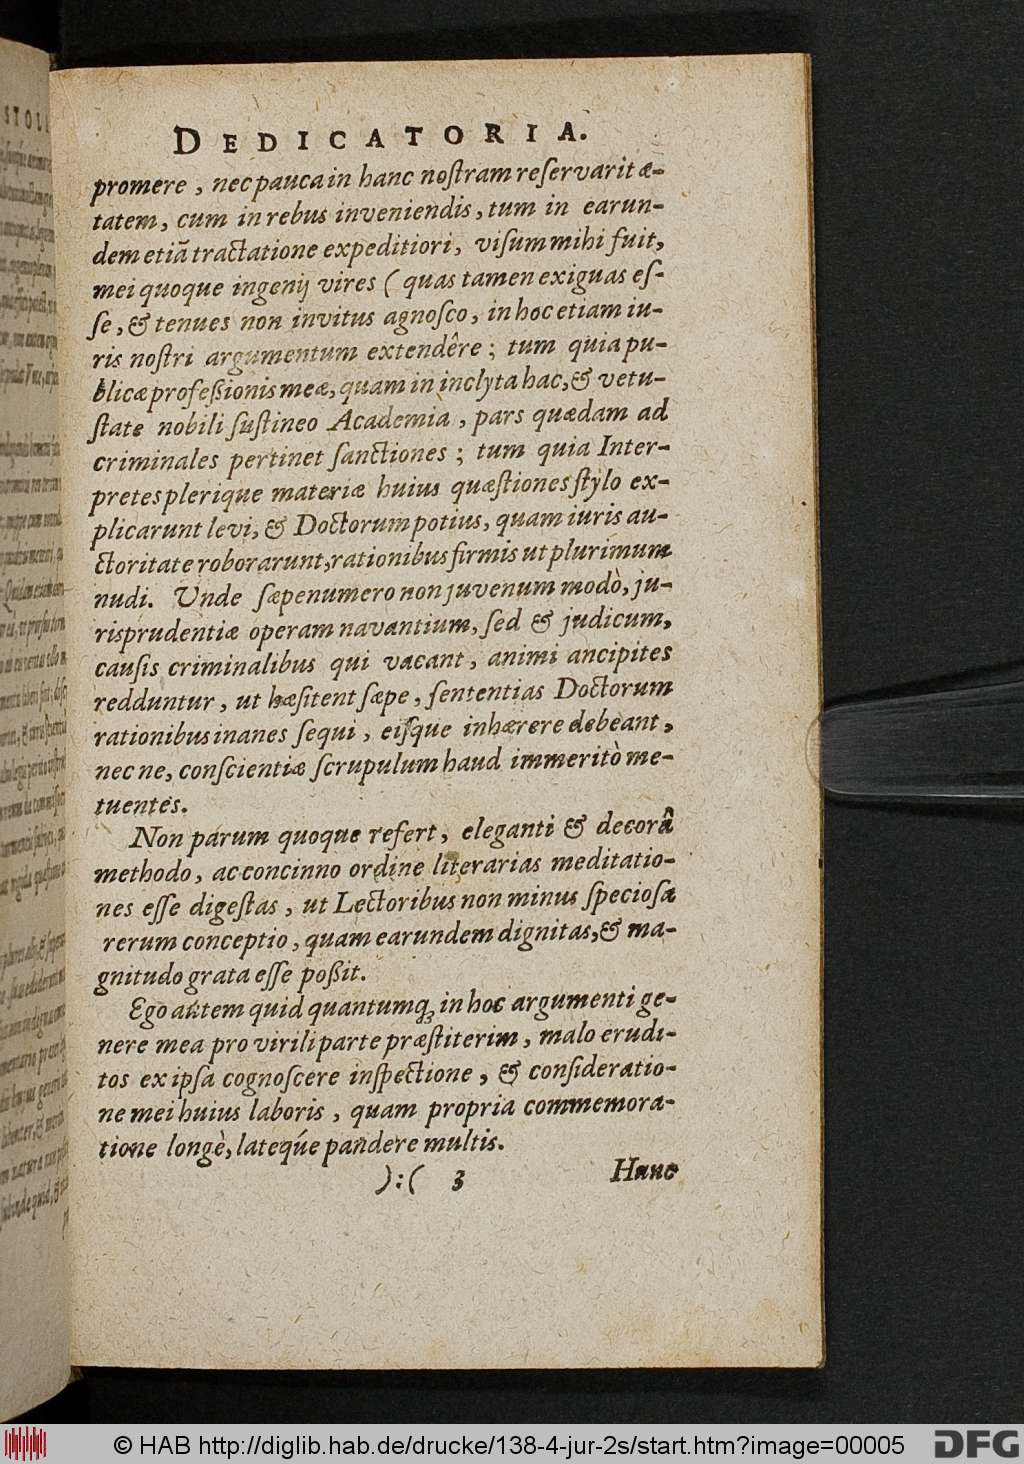 DEDICATORIA.
promere, nec pauca in hanc nostram reservarit æ-
tatem, cum in rebus inveniendis, tum in earun-
dem etiã tractatione expeditiori, visum mihi fuit,
mei quoque ingenij vires (quas tamen exiguas es-
se, & tenues non invitus agnosco, in hoc etiam iu-
ris nostri argumentum extendêre; tum quia pu-
blicæ profeßionis meæ, quam in inclyta hac, & vetu-
state nobili sustineo Academia, pars quædam ad
criminales pertinet sanctiones; tum quia Inter-
pretes plerique materiæ huius quæstiones stylo ex-
plicarunt levi, & Doctorum potius, quam iuris au-
ctoritate roborarunt, rationibus firmis ut plurimum
nudi. Unde sæpenumero non juvenum modò, ju-
risprudentiæ operam navantium, sed & judicum,
causis criminalibus qui vacant, animi ancipites
redduntur, ut hæsitent sæpe, sententias Doctorum
rationibus inanes sequi, eisque inhærere debeant,
nec ne, conscientiæ scrupulum haud immeritò me-
tuentes.
Non parum quoque refert, eleganti & decorâ
methodo, ac concinno ordine literarias meditatio-
nes esse digestas, ut Lectoribus non minus speciosa
rerum conceptio, quam earundem dignitas, & ma-
gnitudo grata esse poßit.
Ego autem quid quantumq́ꝫ in hoc argumenti ge-
nere mea pro virili parte præstiterim, malo erudi-
tos ex ipsa cognoscere inspectione, & consideratio-
ne mei huius laboris, quam propria commemora-
tione longè, lateq́ue pandere multis.
):( 3 Hanc
© HAB http://diglib.hab.de/drucke/138-4-jur-2s/start.htm?image=00005
DFG